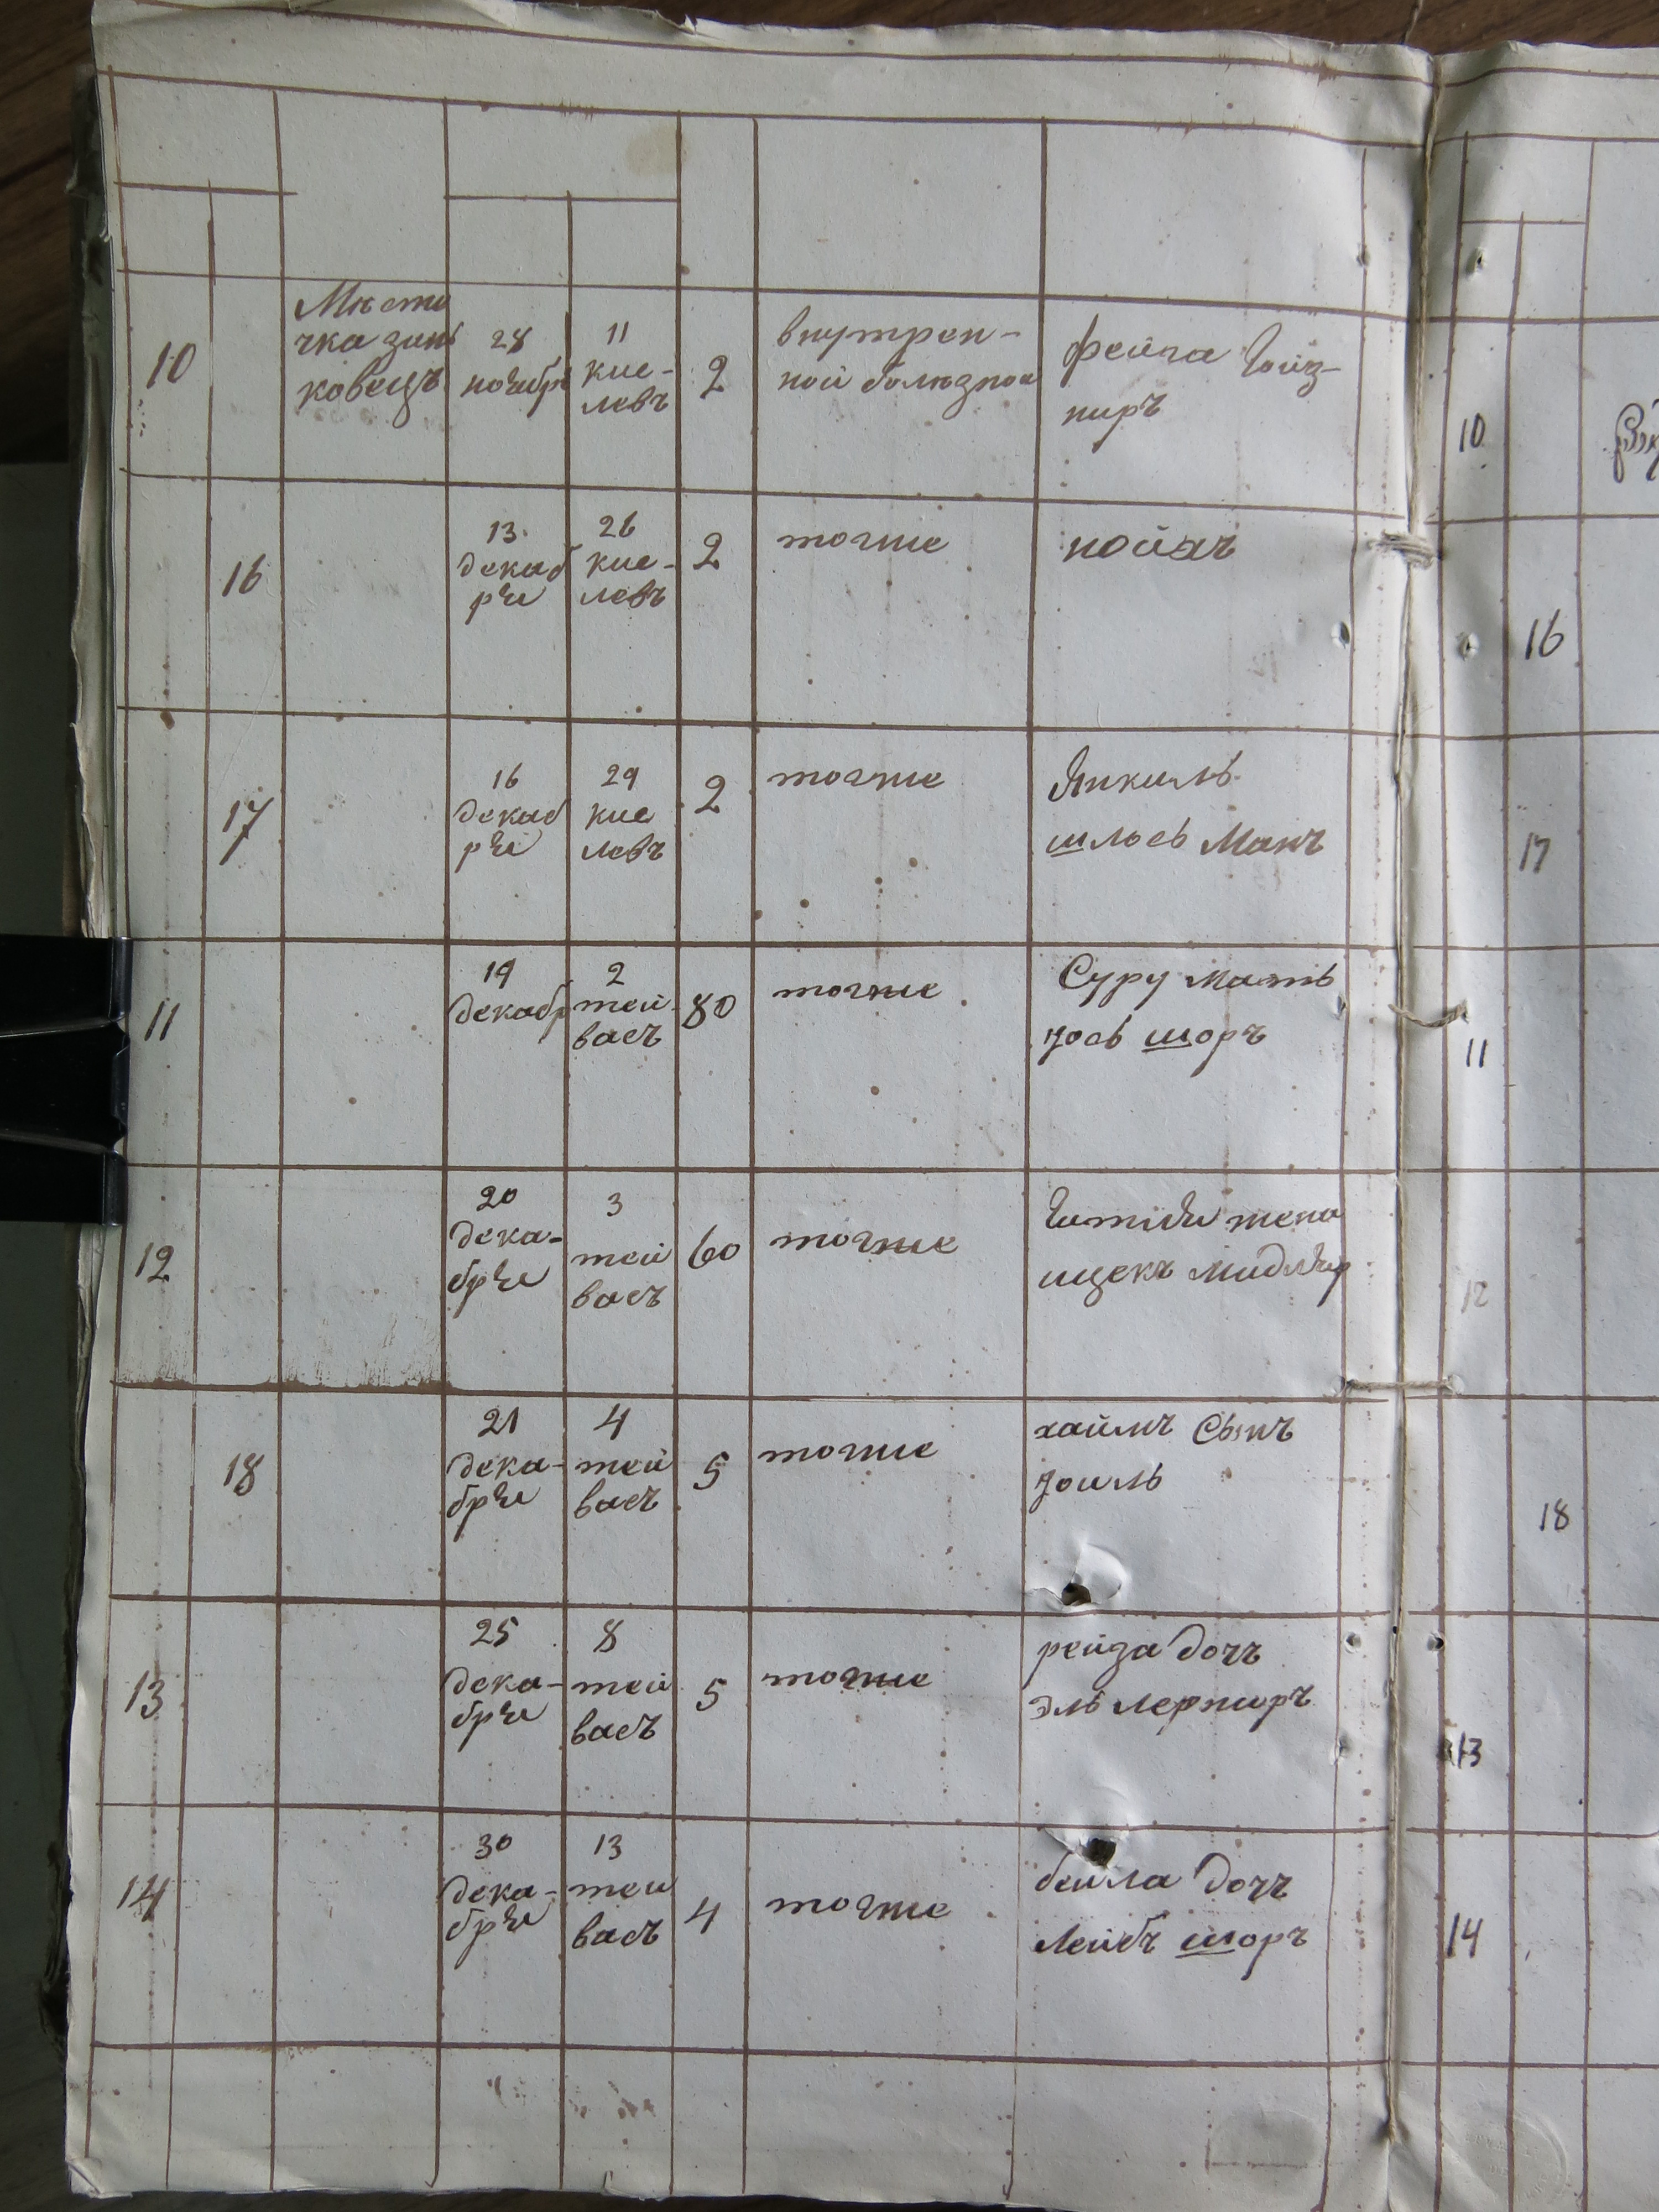 10
Мѣсте
чка зинь
ковецъ
28
ноября
11
кис-
левъ
2
внутрен-
ной болѣзнои
фейга
ниръ
10
16
13
декаб
ря
26
кис-
левъ
2
тогже
нойхъ
16
17
16
декаб
ря
29
кис
левъ
2
тогже
Янкиль
шлоеь Макъ
17
11
19
декабр
2
тей
васъ
80
тогже
Суру мать
іось шоръ
11
12
20
дека-
бря
3
тей
васъ
60
тогже
жена
ицекъ
12
18
21
дека-
бря
4
тей
васъ
5
тогже
хаймъ Сынъ
іоиль
18
13
25
дека-
бря
8
тей
васъ
5
тогже
рейза дочъ
эль лерниръ
13
14
30
дека-
бря
13
теи
васъ
4
тогже
беила дочъ
Лейбъ шоръ
14